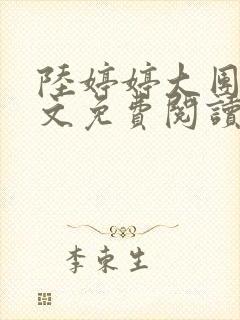 陸婷婷大團
文免費閱讀
李東生